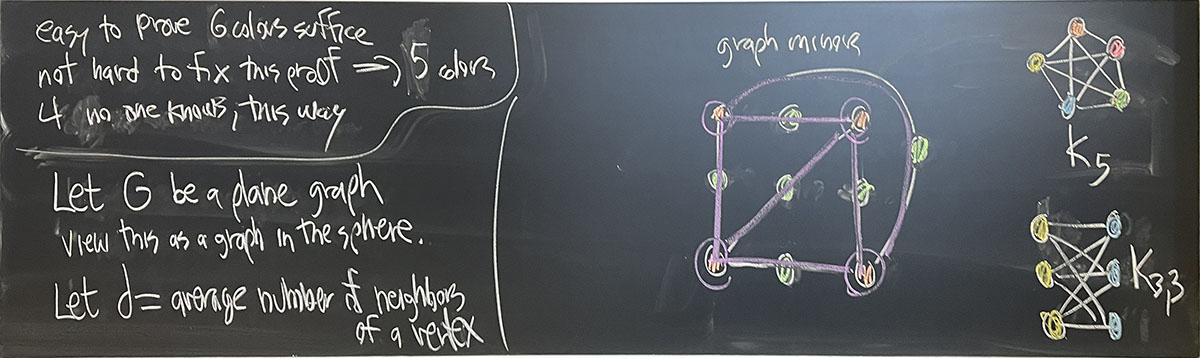 easy to prove 6 colors suffice
not hard to fix this proof => 5 colors
4 no one knows, this way
Let G be a plane graph
view this as a graph in the sphere.
Let d = average number of neighbors
of a vertex
graph minors
K5
K3,3